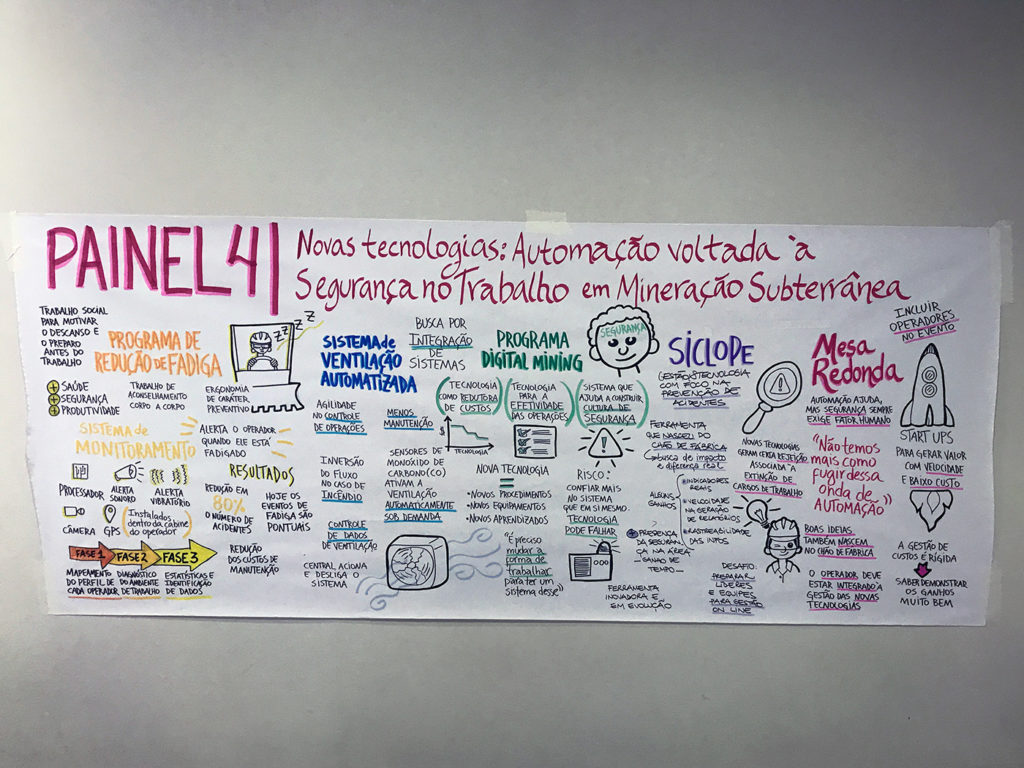 PAINEL 4
Novas tecnologias: Automação voltada à
Segurança no Trabalho em Mineração Subterrânea
TRABALHO SOCIAL
PARA MOTIVAR
O DESCANSO E
O PREPARO
ANTES DO
TRABALHO
PROGRAMA DE
REDUÇÃO DE FADIGA
zzzz
SAÚDE
SEGURANÇA
PRODUTIVIDADE
TRABALHO DE
ACONSELHAMENTO
CORPO A CORPO
ERGONOMIA
DE CARÁTER
PREVENTIVO
SISTEMA de
MONITORAMENTO
ALERTA O OPERADOR
QUANDO ELE ESTÁ
FADIGADO
PROCESSADOR
ALERTA
SONORO
ALERTA
VIBRATÓRIO
CÂMERA
GPS
(Instalados
dentro da cabine
do operador)
RESULTADOS
REDUÇÃO EM
80%
O NÚMERO DE
ACIDENTES
HOJE OS
EVENTOS DE
FADIGA SÃO
PONTUAIS
FASE 1
FASE 2
FASE 3
MAPEAMENTO
DO PERFIL DE
CADA OPERADOR
DIAGNÓSTICO
DO AMBIENTE
DE TRABALHO
ESTATÍSTICAS E
IDENTIFICAÇÃO
DE DADOS
REDUÇÃO
DOS CUSTOS DE
MANUTENÇÃO
SISTEMA de
VENTILAÇÃO
AUTOMATIZADA
BUSCA POR
INTEGRAÇÃO
DE
SISTEMAS
AGILIDADE
NO CONTROLE
DE OPERAÇÕES
MENOS
MANUTENÇÃO
INVERSÃO
DO FLUXO
NO CASO DE
INCÊNDIO
SENSORES DE
MONÓXIDO DE
CARBONO (CO)
ATIVAM A
VENTILAÇÃO
AUTOMATICAMENTE
SOB DEMANDA
CONTROLE
DE DADOS
DE VENTILAÇÃO
CENTRAL ACIONA
E DESLIGA O
SISTEMA
PROGRAMA
DIGITAL MINING
SEGURANÇA
(TECNOLOGIA
COMO REDUTORA
DE CUSTOS)
(TECNOLOGIA
PARA A
EFETIVIDADE
DAS OPERAÇÕES)
(SISTEMA QUE
AJUDA A CONSTRUIR
CULTURA DE
SEGURANÇA)
$
TECNOLOGIA
NOVA TECNOLOGIA
=
• NOVOS PROCEDIMENTOS
• NOVOS EQUIPAMENTOS
• NOVOS APRENDIZADOS
"É preciso
mudar a
forma de
trabalhar
para ter um
sistema desse"
!
RISCO:
CONFIAR MAIS
NO SISTEMA
QUE EM SI MESMO.
TECNOLOGIA
PODE FALHAR
FERRAMENTA
INOVADORA E
EM EVOLUÇÃO
SÍCLOPE
GESTÃO & TECNOLOGIA
COM FOCO NA
PREVENÇÃO DE
ACIDENTES
!
FERRAMENTA
QUE NASCEU DO
CHÃO DE FÁBRICA
• busca de impacto
e diferença real
ALGUNS
GANHOS
INDICADORES
REAIS
VELOCIDADE
NA GERAÇÃO
DE RELATÓRIOS
RASTREABILIDADE
DAS INFOS
PRESENÇA
DA SEGURAN-
ÇA NA ÁREA
- GANHO DE
TEMPO -
DESAFIO:
PREPARAR
LÍDERES
E EQUIPES
PARA GESTÃO
ON LINE
Mesa
Redonda
INCLUIR
OPERADORES
NO EVENTO
AUTOMAÇÃO AJUDA,
MAS SEGURANÇA SEMPRE
EXIGE FATOR HUMANO
NOVAS TECNOLOGIAS
GERAM CERTA REJEIÇÃO
ASSOCIADA À
EXTINÇÃO DE
CARGOS DE TRABALHO
"Não temos
mais como
fugir dessa
onda de
AUTOMAÇÃO"
BOAS IDEIAS
TAMBÉM NASCEM
NO CHÃO DE FÁBRICA
O OPERADOR DEVE
ESTAR INTEGRADO À
GESTÃO DAS NOVAS
TECNOLOGIAS
START UPS
PARA GERAR VALOR
COM VELOCIDADE
E BAIXO CUSTO
A GESTÃO DE
CUSTOS É RÍGIDA
SABER DEMONSTRAR
OS GANHOS
MUITO BEM